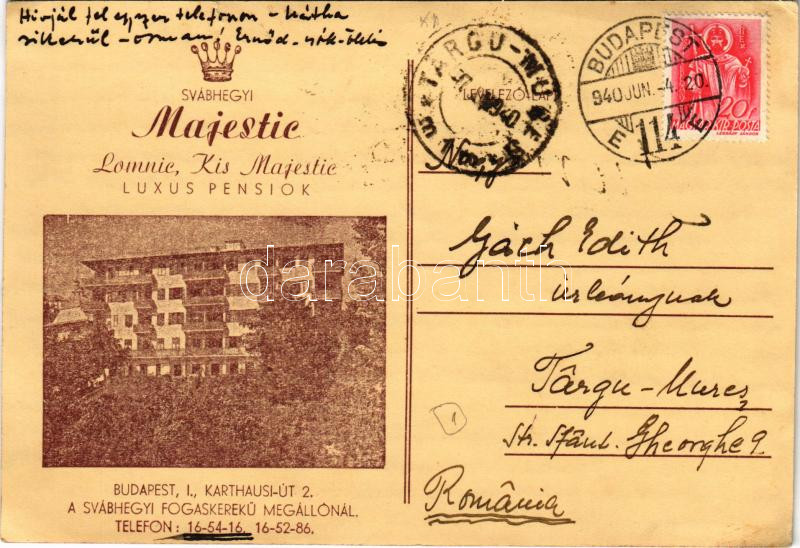 Hívjál fel egyszer telefonon - hátha
sikerül -
SVÁBHEGYI
Majestic
Lomnic, Kis Majestic
LUXUS PENSIOK
BUDAPEST, I., KARTHAUSI-ÚT 2.
A SVÁBHEGYI FOGASKEREKŰ MEGÁLLÓNÁL.
TELEFON: 16-54-16, 16-52-86.
LEVELEZŐ-LAP
TARGU-MUREȘ
BUDAPEST
940 JUN. -4. 20.
114
20f
MAGYAR KIR. POSTA
Nagys.
Gách Edith
úrleánynak
Târgu-Mureș
Str. Sfânt. Gheorghe 9.
România
1
darabanth